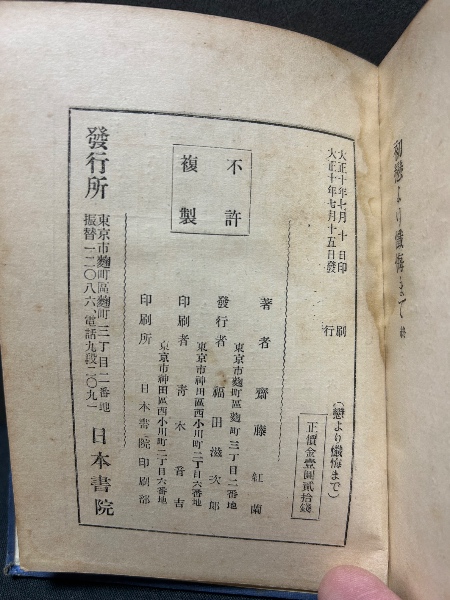 初戀より懺悔まで 終
大正十年七月十日印刷
大正十年七月十五日發行
(戀より懺悔まで)
正價金壹圓貳拾錢
不許
複製
著者 齋藤紅蘭
東京市麴町區麴町三丁目二番地
發行者 福田滋次郎
東京市神田區西小川町二丁目六番地
印刷者 靑木音吉
東京市神田區西小川町二丁目六番地
印刷所 日本書院印刷部
發行所 東京市麴町區麴町三丁目二番地 日本書院
振替一二〇八六、電話九段二〇九一